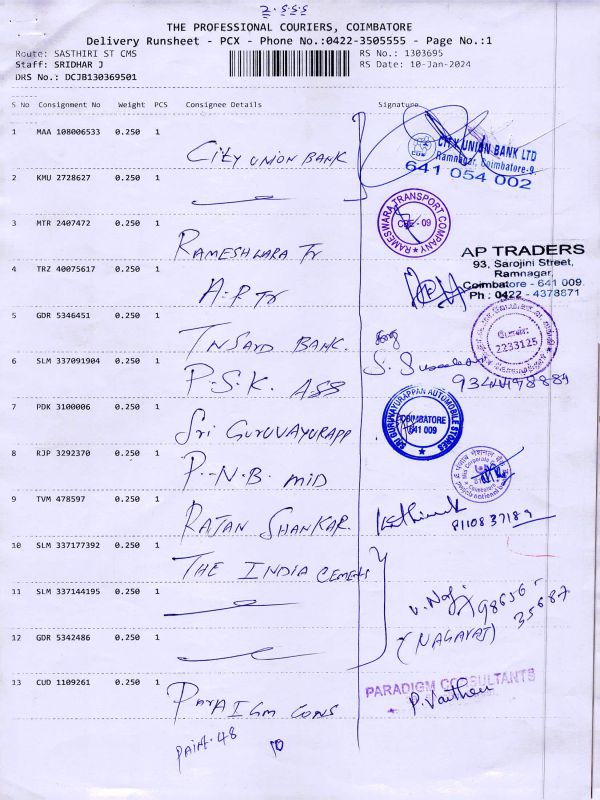 2.555
THE PROFESSIONAL COURIERS, COIMBATORE
Delivery Runsheet - PCX - Phone No.:0422-3505555 - Page No.:1
Route: SASTHIRI ST CMS RS No.: 1303695
Staff: SRIDHAR J RS Date: 10-Jan-2024
DRS No.: DCJB130369501
S No Consignment No Weight PCS Consignee Details Signature
1 MAA 108006533 0.250 1 CITY UNION BANK
CITY UNION BANK LTD
Ramnagar, Coimbatore-9.
641 054 002
2 KMU 2728627 0.250 1
3 MTR 2407472 0.250 1 RAMESHWARA Tr
RAMESWARA TRANSPORT COMPANY
CBE - 09
4 TRZ 40075617 0.250 1 A.P Tr
AP TRADERS
93, Sarojini Street,
Ramnagar,
Coimbatore - 641 009.
Ph : 0422 - 4378871
5 GDR 5346451 0.250 1 TN SAYD BANK.
2233125
6 SLM 337091904 0.250 1 P.S.K. ASS
7 PDK 3100006 0.250 1 Sri GURUVAYURAPP
SRI GURUVAYURAPPAN AUTOMOBILE STORES
COIMBATORE
641 009
8 RJP 3292370 0.250 1 P.N.B. MID
punjab national bank
9 TVM 478597 0.250 1 RAJAN SHANKAR.
8110837189
10 SLM 337177392 0.250 1 THE INDIA CEMENTS
11 SLM 337144195 0.250 1
V. Nagj 98656
35687
12 GDR 5342486 0.250 1
(NAGARAJ)
13 CUD 1109261 0.250 1 PARAIGM CONS
PARADIGM CONSULTANTS
10